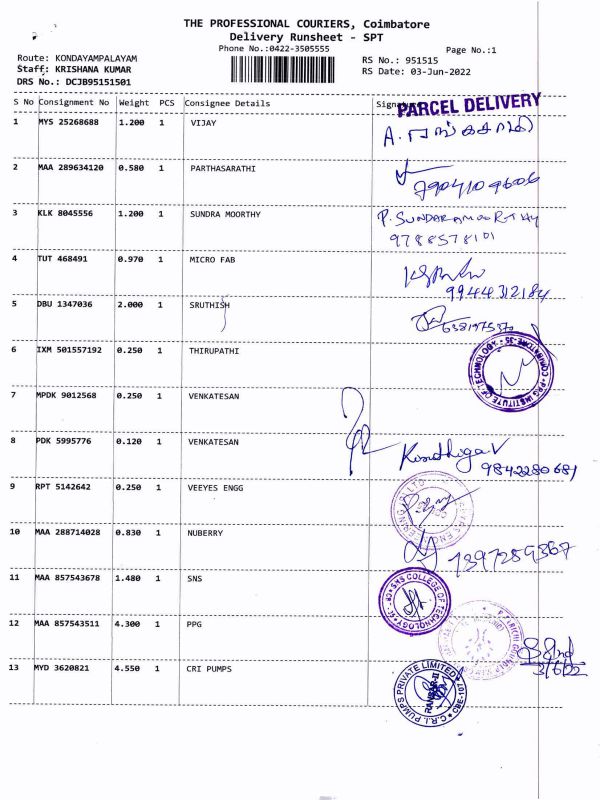 THE PROFESSIONAL COURIERS, Coimbatore
Delivery Runsheet - SPT
Phone No.:0422-3505555
Page No.:1
Route: KONDAYAMPALAYAM
RS No.: 951515
Staff: KRISHANA KUMAR
RS Date: 03-Jun-2022
DRS No.: DCJB95151501
S No Consignment No Weight PCS Consignee Details Signature
PARCEL DELIVERY
1 MYS 25268688 1.200 1 VIJAY
2 MAA 289634120 0.580 1 PARTHASARATHI
7904109606
3 KLK 8045556 1.200 1 SUNDRA MOORTHY P. SUNDARAMOORTHY
9788578101
4 TUT 468491 0.970 1 MICRO FAB
9944312184
5 DBU 1347036 2.000 1 SRUTHISH
6 IXM 501557192 0.250 1 THIRUPATHI
PPG INSTITUTE OF TECHNOLOGY COIMBATORE-35
7 MPDK 9012568 0.250 1 VENKATESAN
8 PDK 5995776 0.120 1 VENKATESAN
9842280681
9 RPT 5142642 0.250 1 VEEYES ENGG
10 MAA 288714028 0.830 1 NUBERRY
11 MAA 857543678 1.480 1 SNS
SNS COLLEGE OF TECHNOLOGY
12 MAA 857543511 4.300 1 PPG
3/6/22
13 MYD 3620821 4.550 1 CRI PUMPS
C.R.I. PUMPS PRIVATE LIMITED